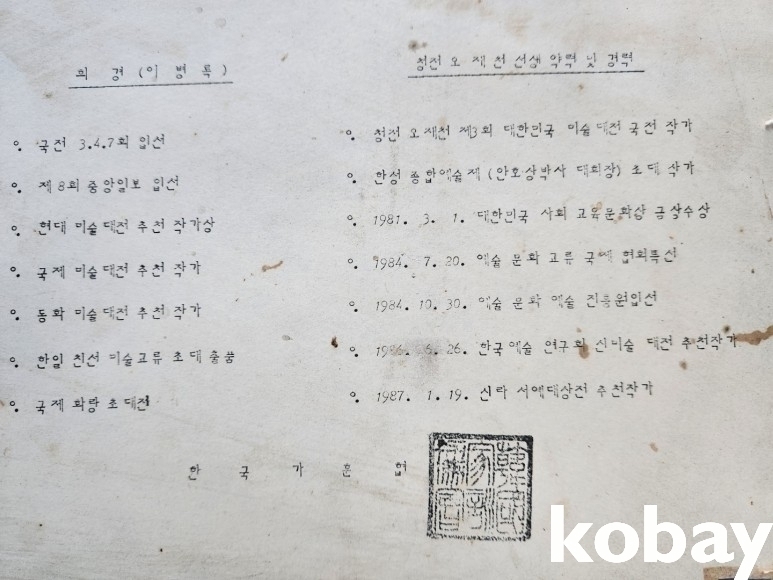 희 경 (이 병 록)
º. 국전 3.4.7회 입선
º. 제 8회 중앙일보 입선
º. 현대 미술대전 추천 작가상
º. 국제 미술대전 추천 작가
º. 동화 미술대전 추천 작가
º. 한일 친선 미술교류 초대 출품
º. 국제 화랑 초대전
청전 오 재 천 선생 약력 및 경력
º. 청전 오재천 제3회 대한민국 미술대전 국전 작가
º. 한성 종합예술제 (안호상박사 대회장) 초대 작가
º. 1981. 3. 1. 대한민국 사회 교육문화상 금상수상
º. 1984. 7. 20. 예술 문화 교류 국제 협회특선
º. 1984. 10. 30. 예술 문화 예술 진흥원입선
º. 6. 26. 한국예술 연구회 신미술 대전 추천작가
º. 1987. 1. 19. 신라 서예대상전 추천작가
한 국 가 훈 협
kobay